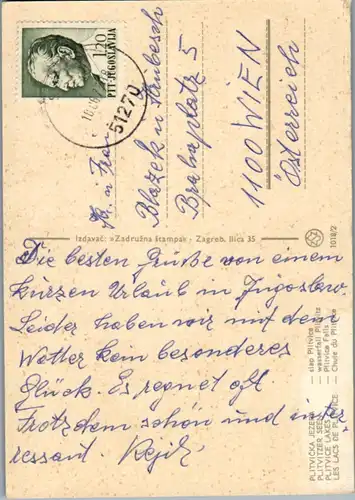 1.20
PTT JUGOSLAVIJA
51270
Hr. u Frau
Blazek u
Brahaplatz 5
1100 WIEN
Österreich
Izdavač: »Zadružna štampa« - Zagreb, Ilica 35
1018/2
PLITVIČKA JEZERA — slap Plitvica
PLITVITZER SEEN — wasserfall Plitvitz
PLITVICE LAKES — Plitvica Falls
LES LACS DE PLITVICE — Chute du Plitvice
Die besten Grüße von einem
kurzen Urlaub in Jugoslaw.
Leider haben wir mit dem
Wetter kein besonderes
Glück. Es regnet oft
Trotzdem schön und inter
ressant.